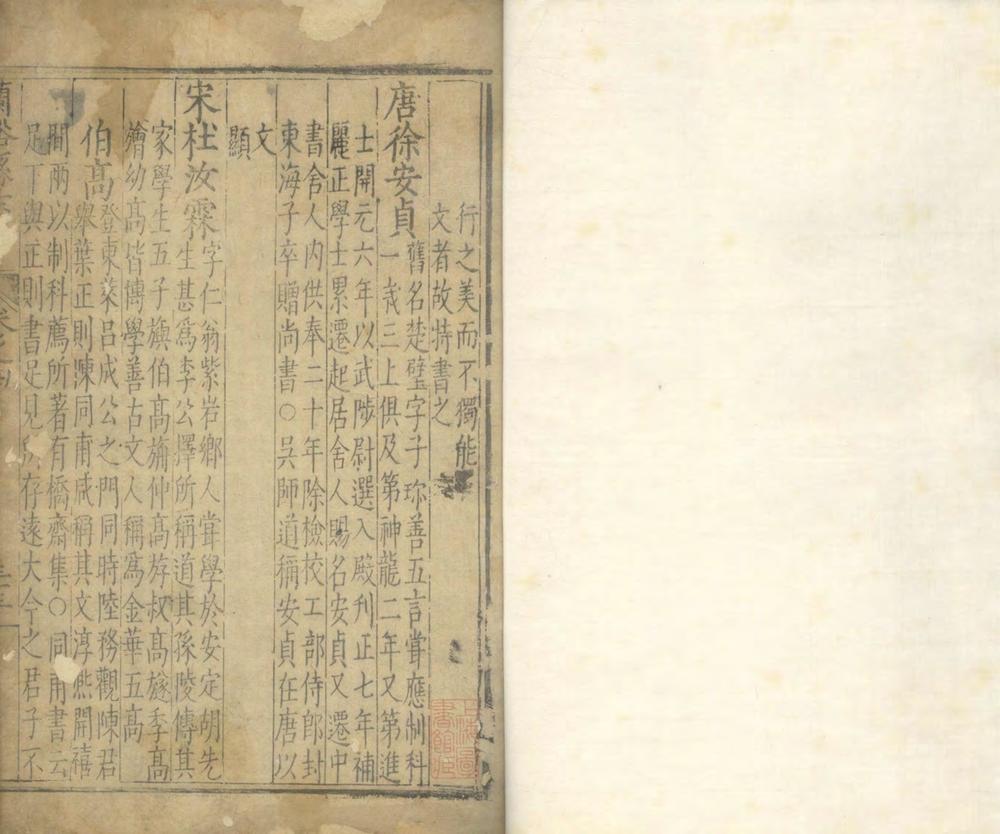 行之美而不獨能
文者故特書之
唐徐安貞舊名楚璧字子珍善五言甞應制科
一歲三上俱及第神龍二年又第進
士開元六年以武陟尉選入殿刋正七年補
麗正學士累遷起居舍人賜名安貞又遷中
書舍人内供奉二十年除檢校工部侍郎封
東海子卒贈尚書○吳師道稱安貞在唐以
文
顯
宋杜汝霖字仁翁紫岩鄉人甞學於安定胡先
生甚爲李公擇所稱道其孫陵傳其
家學生五子旟伯髙旃仲髙斿叔髙旞季髙
旝幼髙皆博學善古文人稱爲金華五髙
伯髙登東萊吕成公之門同時陸務觀陳君
舉葉正則陳同甫咸稱其文淳熙開禧
間兩以制科薦所著有橋齋集○同甫書云
足下與正則書足見所存逺大今之君子不
蘭谿縣志
卷之
上海圖書館藏